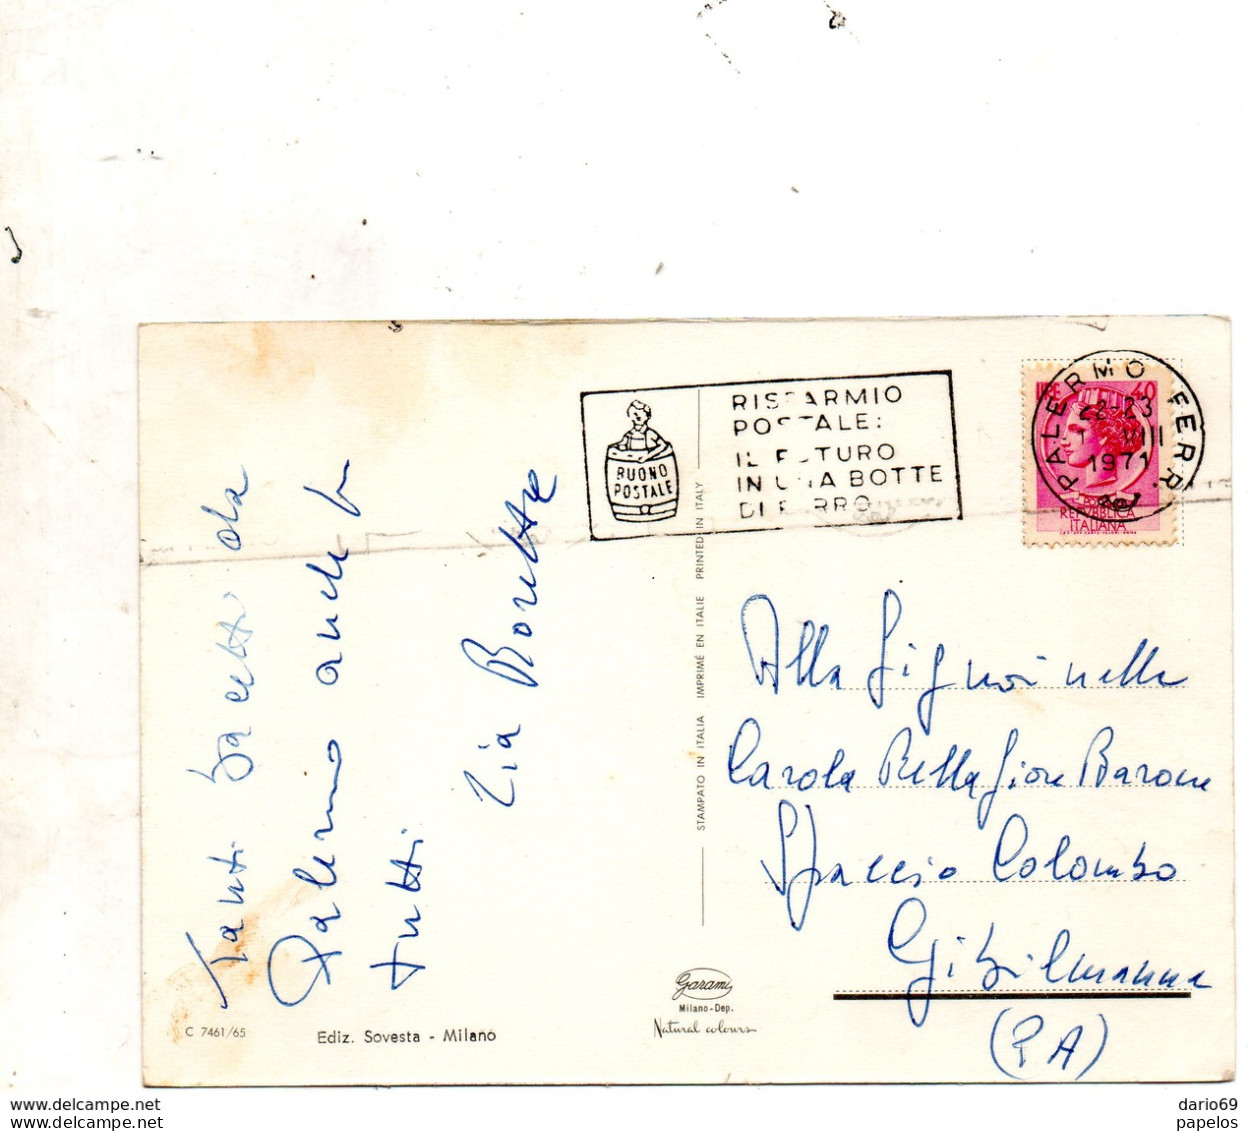 Tanti bacetti da
Palermo anche per
tutti
Zia Rorette
C 7461/65
Ediz. Sovesta - Milano
STAMPATO IN ITALIA IMPRIMÉ EN ITALIE PRINTED IN ITALY
Garami
Milano-Dep.
Natural colours
BUONO
POSTALE
RISPARMIO
POSTALE:
IL FUTURO
IN UNA BOTTE
DI FERRO
PALERMO FERR.
22-23
VIII
1971
LIRE 40
REPVBBLICA
ITALIANA
Alla Signorinella
Carola Bellafiore Barone
Spaccio Colombo
Gibilmanna
(PA)
www.delcampe.net
www.delcampe.net
dario69
papelos